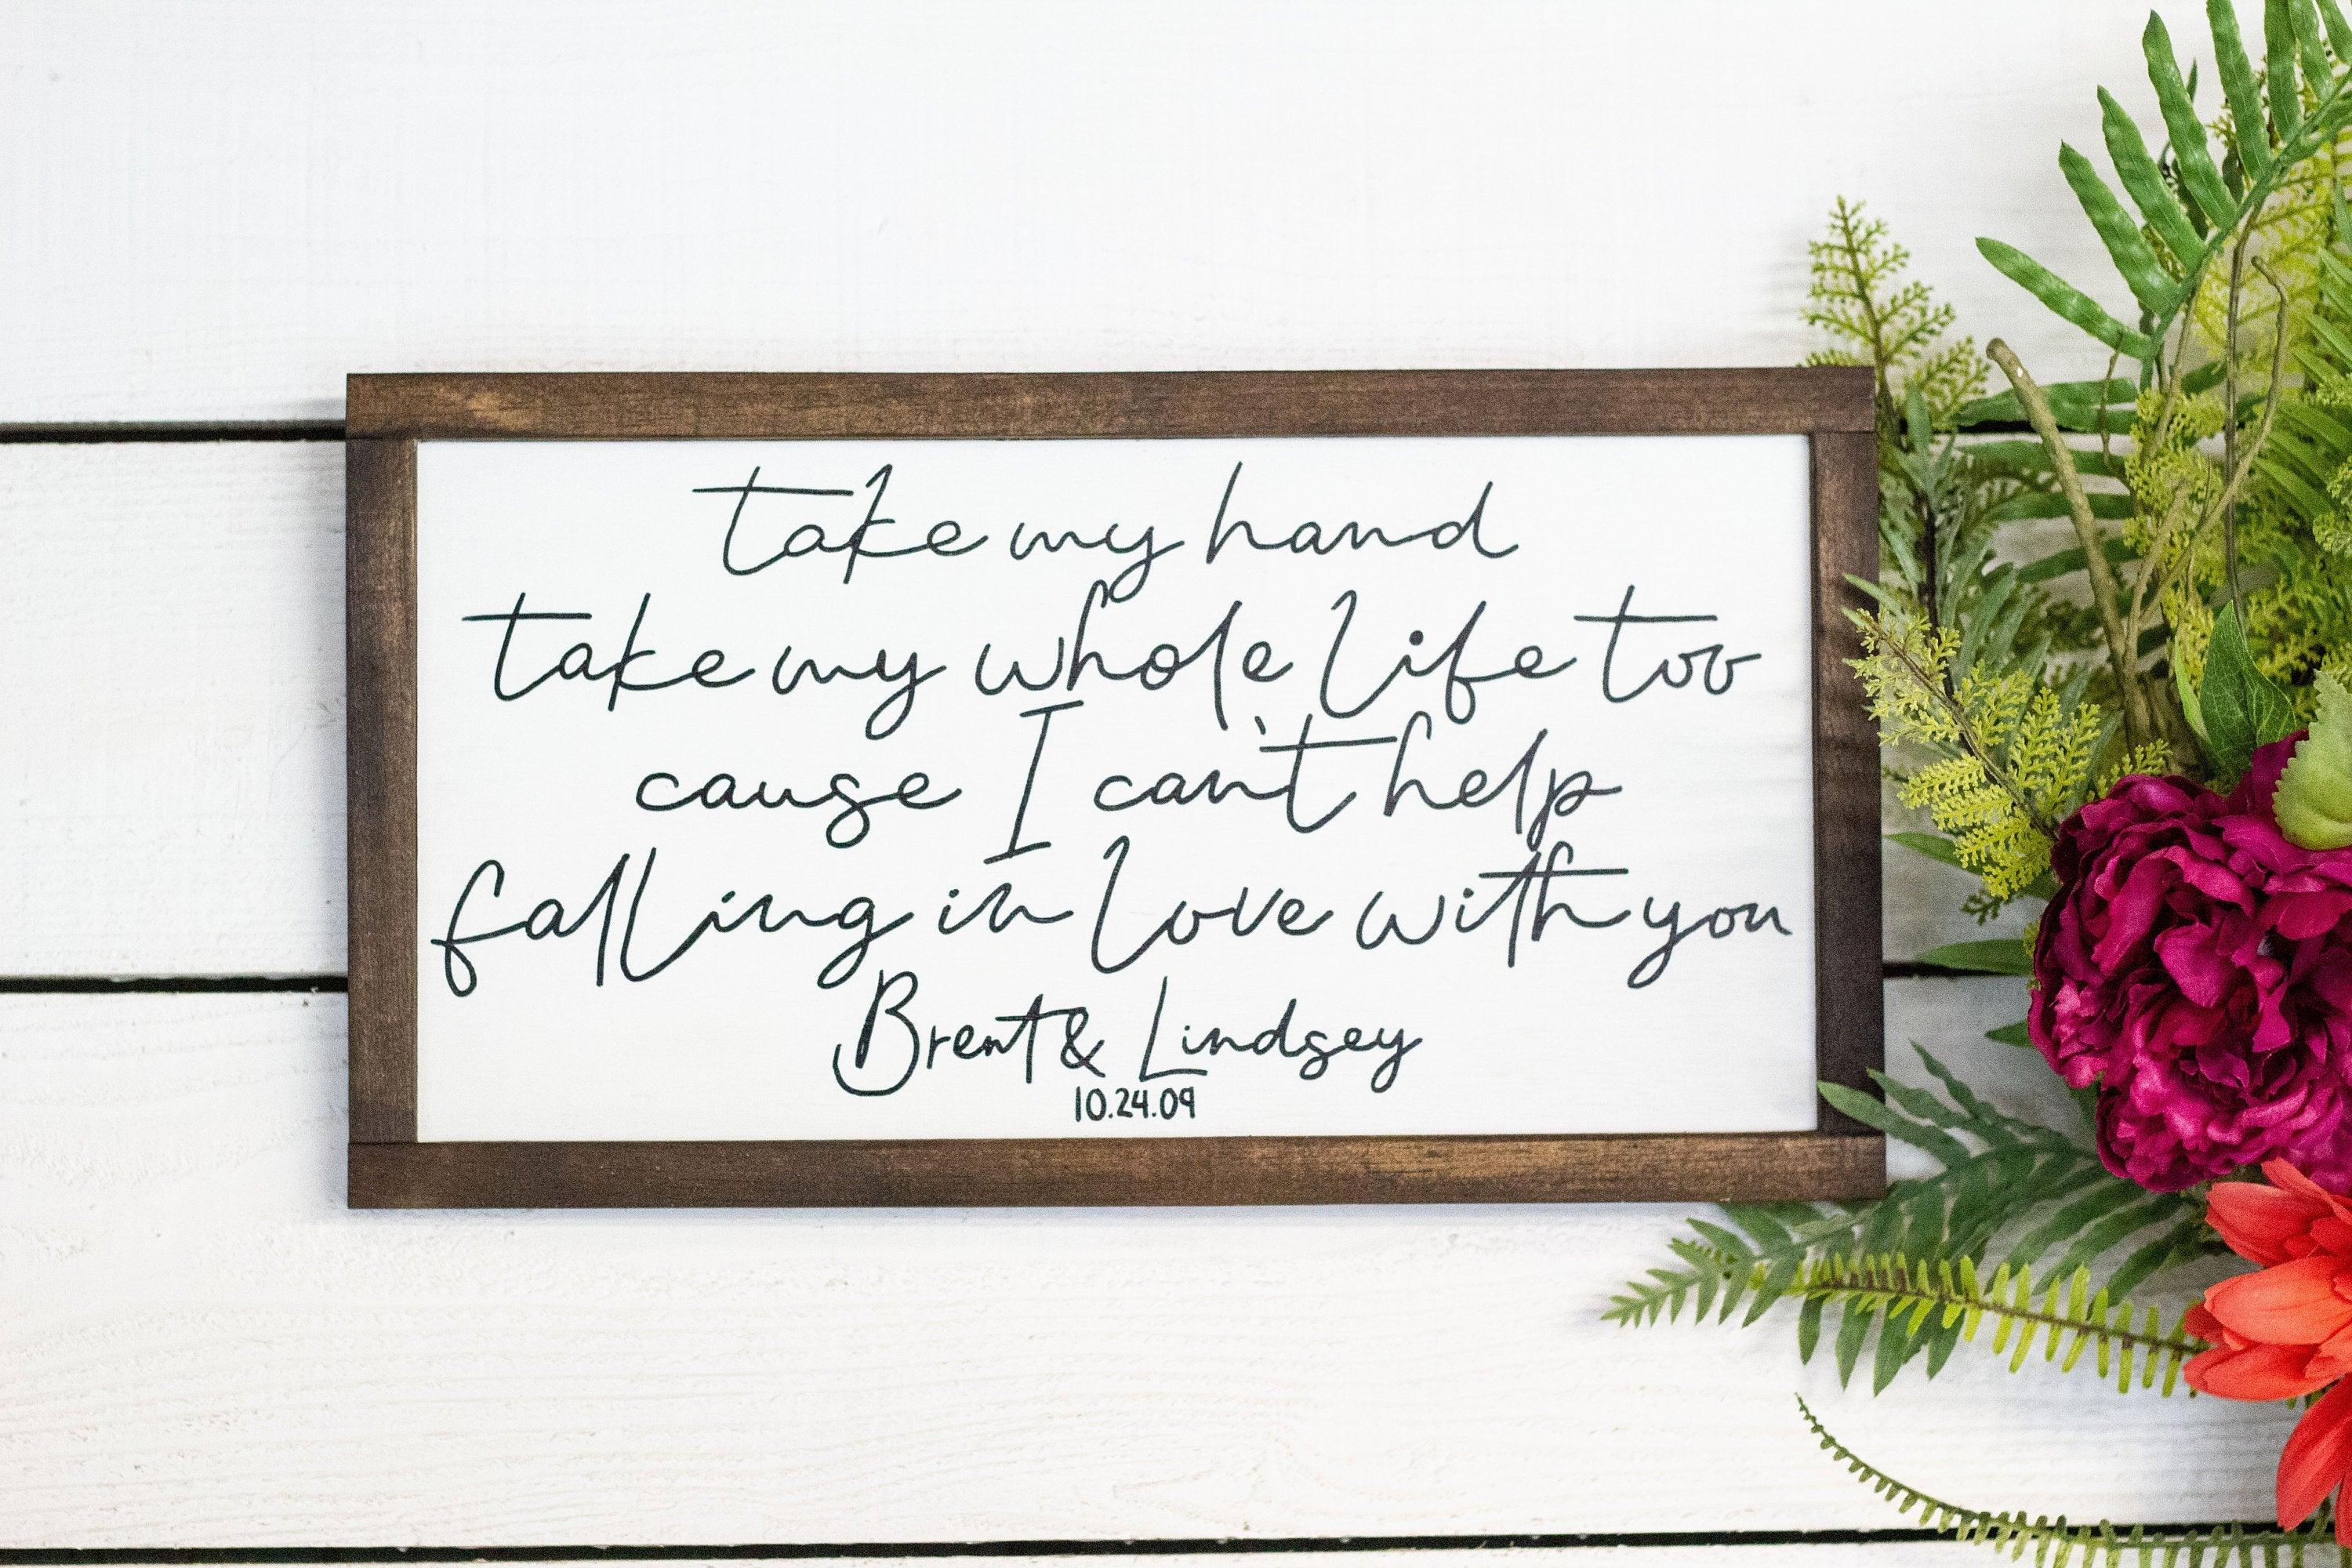 take my hand
take my whole life too
cause I can't help
falling in love with you
Brent & Lindsey
10.24.09